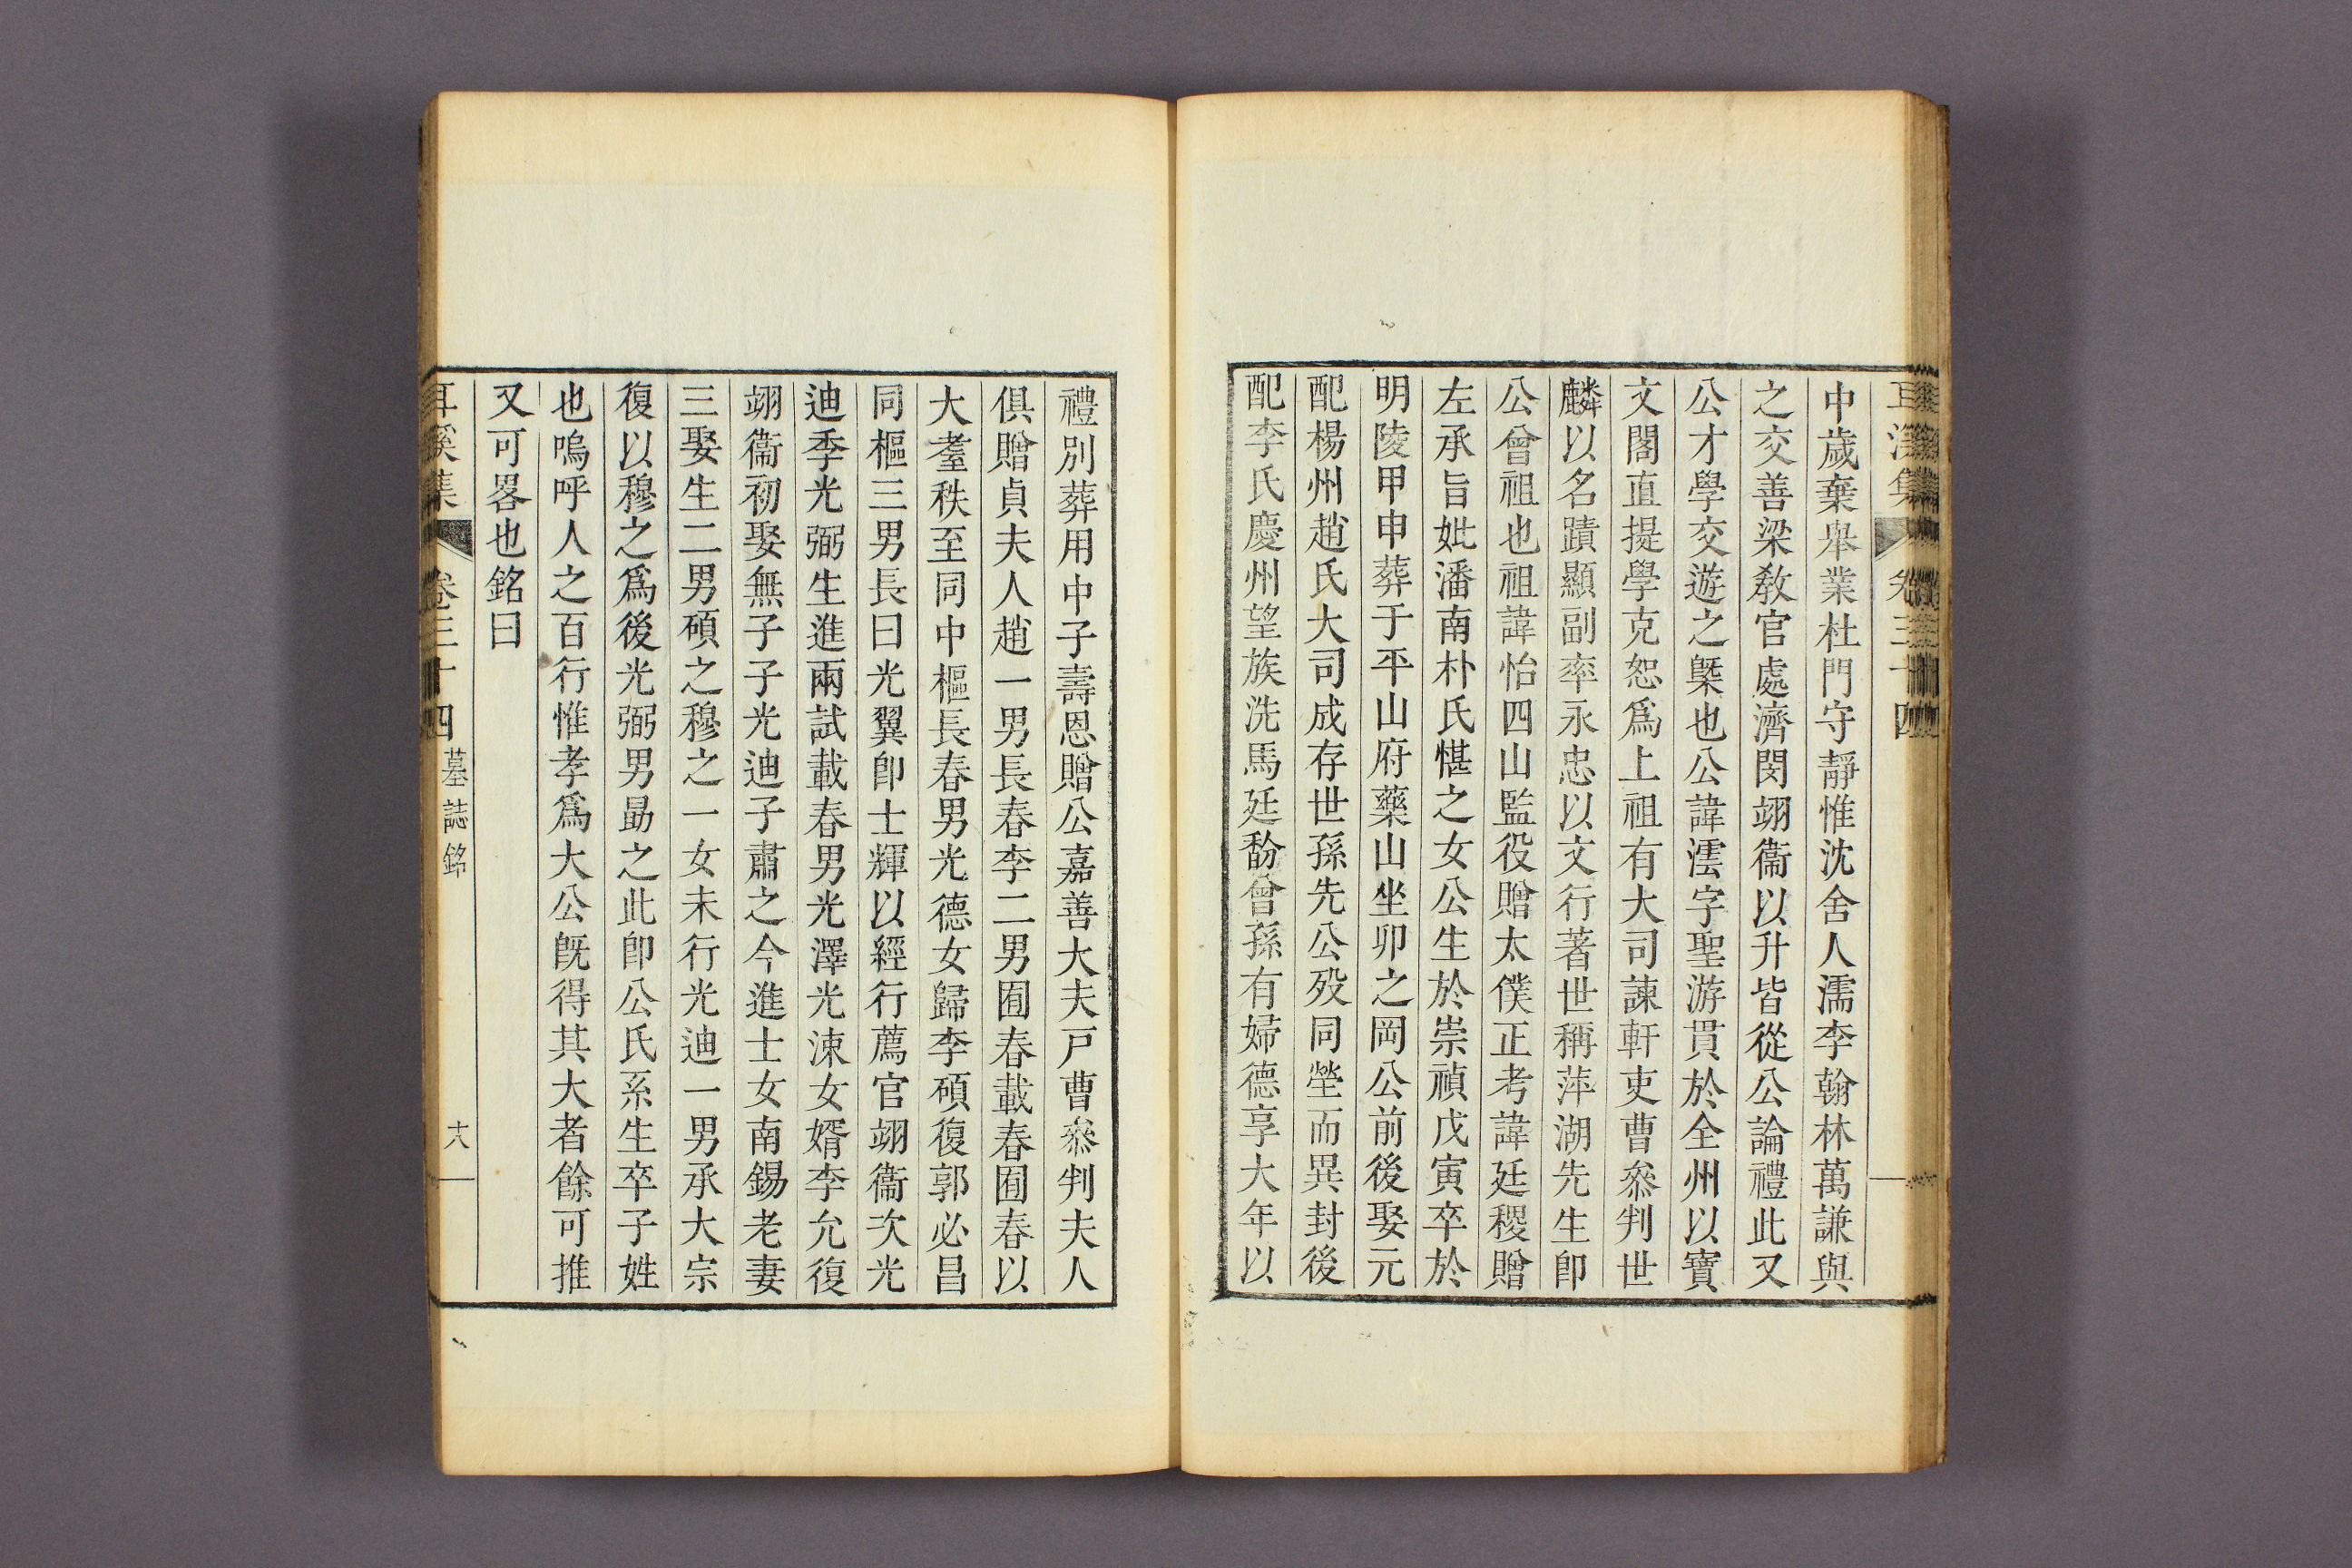 中歲棄舉業杜門守靜惟沈舍人濡李翰林萬謙與
之交善梁敎官處濟閔翊衞以升皆從公論禮此又
公才學交遊之槩也公諱澐字聖游貫於全州以寶
文閣直提學克恕爲上祖有大司諫軒吏曹叅判世
麟以名蹟顯副率永忠以文行著世稱萍湖先生卽
公曾祖也祖諱怡四山監役贈太僕正考諱廷稷贈
左承旨妣潘南朴氏愖之女公生於崇禎戊寅卒於
明陵甲申葬于平山府藥山坐卯之岡公前後娶元
配楊州趙氏大司成存世孫先公歿同塋而異封後
配李氏慶州望族洗馬廷馚曾孫有婦德享大年以
禮別葬用中子壽恩贈公嘉善大夫戶曹叅判夫人
俱贈貞夫人趙一男長春李二男囿春載春囿春以
大耋秩至同中樞長春男光德女歸李碩復郭必昌
同樞三男長曰光翼卽士輝以經行薦官翊衞次光
迪季光弼生進兩試載春男光澤光涑女婿李允復
翊衞初娶無子子光迪子肅之今進士女南錫老妻
三娶生二男碩之穆之一女未行光迪一男承大宗
復以穆之爲後光弼男勗之此卽公氏系生卒子姓
也嗚呼人之百行惟孝爲大公旣得其大者餘可推
又可畧也銘曰
耳溪集 卷三十四 墓誌銘 十八